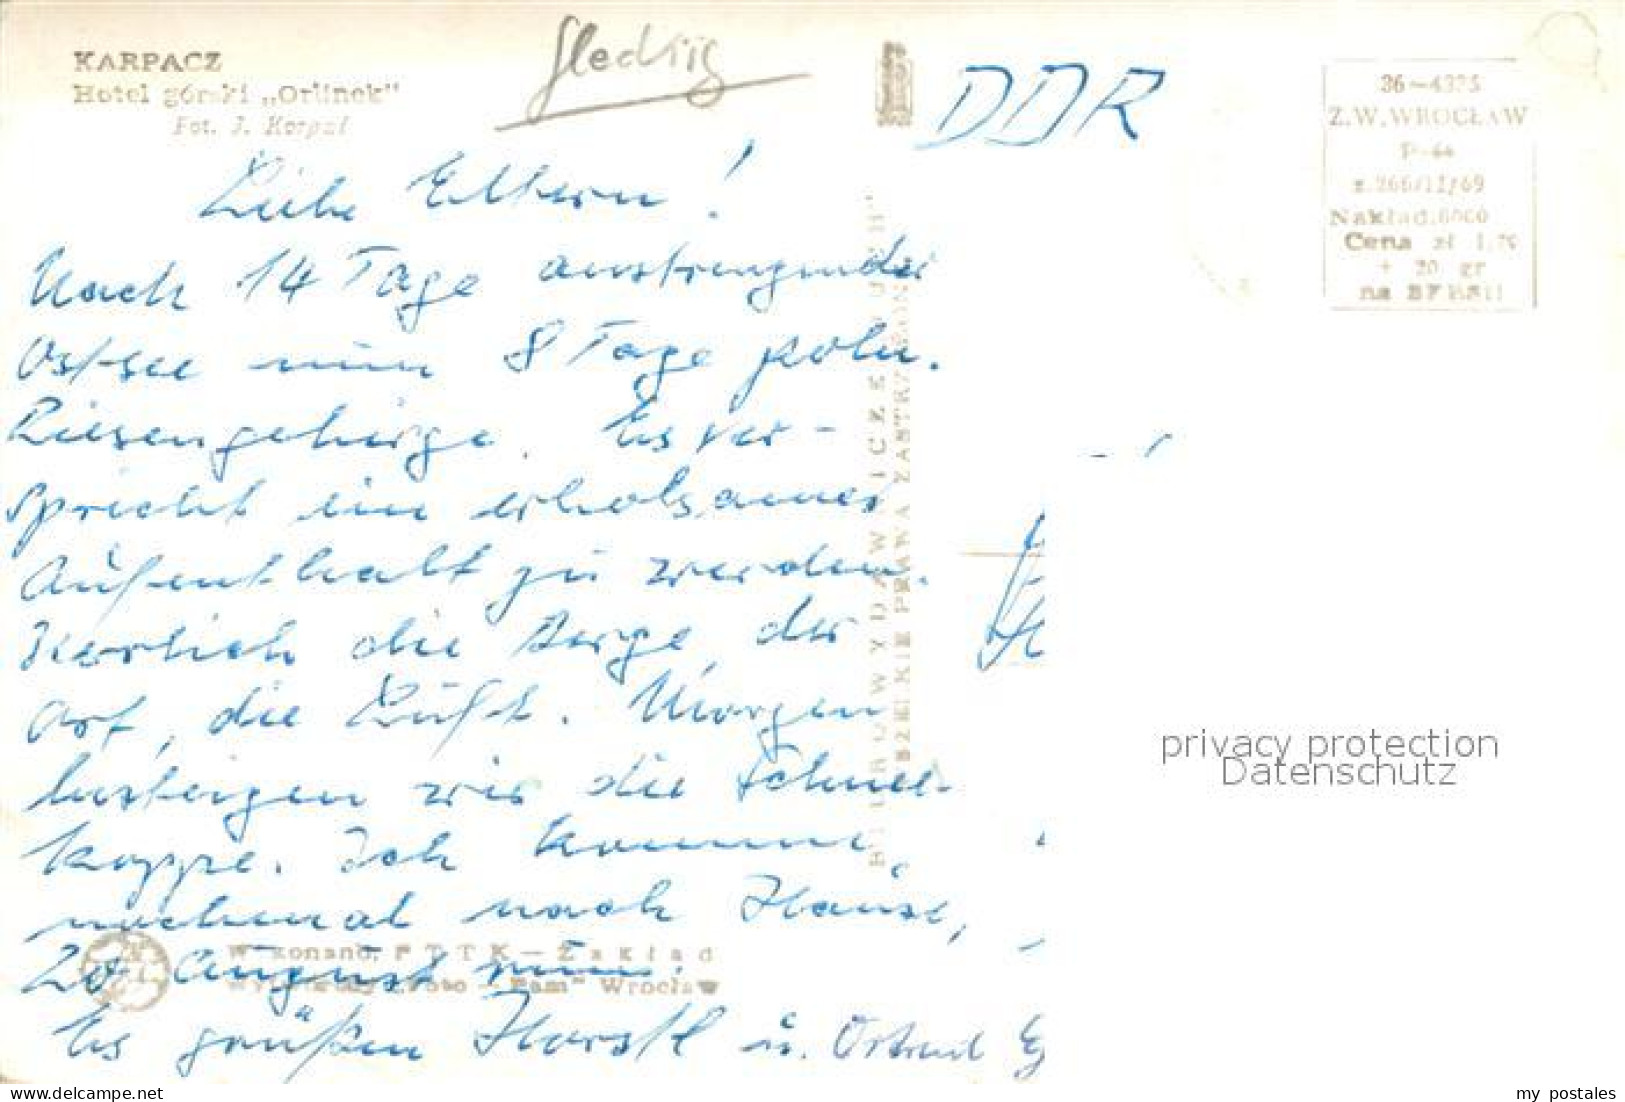 KARPACZ
Hotel górski „Orlinek"
Fot. J. Korpal
DDR
26-4335
Z.W. WROCŁAW
P-44
z. 266/II/69
Nakład. 8000
Cena zł 1,70
+ 20 gr
na SFBSiI
Liebe Eltern!
Nach 14 Tage anstrengender
Ostsee nun 8 Tage poln.
Riesengebirge. Es ver-
spricht ein erholsamer
Aufenthalt zu werden.
Herrlich die Berge, der
Ort, die Luft. Morgen
besteigen wir die Schnee-
koppe. Ich komme
nochmal nach Hause,
August
Es grüßen Horst u. Ortrud
BIURO WYDAWNICZE „RUCH"
WSZELKIE PRAWA ZASTRZEŻONE
Wykonano: PTTK — Zakład
Wytwórczy „Foto-Pam" Wrocław
privacy protection
Datenschutz
my postales